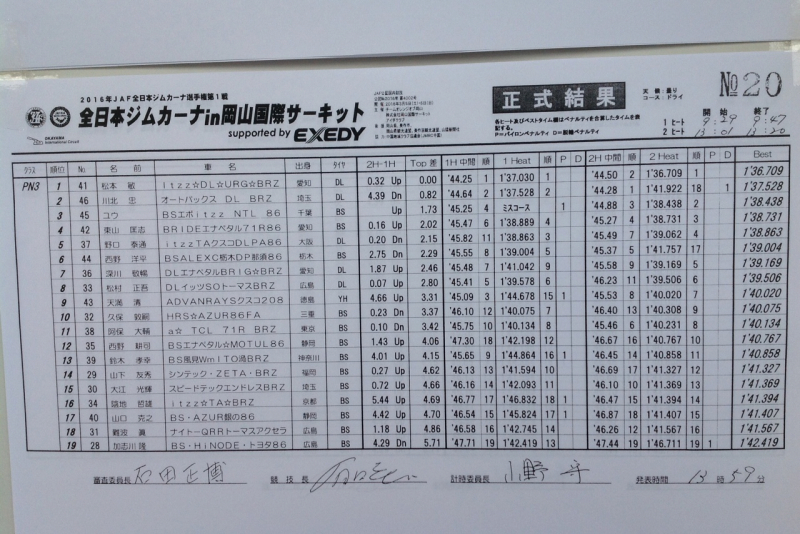 2016年JAF全日本ジムカーナ選手権第1戦
全日本ジムカーナin岡山国際サーキット
supported by EXEDY
正式結果
天候:曇り
コース:ドライ
No 20
各ヒート及びベストタイム順はペナルティを含算したタイムを表記する。
P=パイロンペナルティ D=脱輪ペナルティ
開始 終了
1ヒート 9:29 9:47
2ヒート 13:01 13:20
クラス 順位 No 名前 車名 出身 タイヤ 2H-1H Top差 1H中間 順 1 Heat 順 P D 2H中間 順 2 Heat 順 P D Best
PN3 1 41 松本 敏 Itzz☆DL☆URG☆BRZ 愛知 DL 0.32 Up 0.00 '44.25 1 1'37.030 1 '44.50 2 1'36.709 1 1'36.709
2 46 川北 忠 オートバックス DL BRZ 埼玉 DL 4.39 Dn 0.82 '44.64 2 1'37.528 2 '44.28 1 1'41.922 18 1 1'37.528
3 45 ユウ BSエボitzz NTL 86 千葉 BS Up 1.73 '45.25 4 ミスコース 1 '44.88 3 1'38.438 2 1'38.438
4 42 東山 匡志 BRIDEエナペタル71R86 愛知 BS 0.16 Up 2.02 '45.47 6 1'38.889 4 '45.27 4 1'38.731 3 1'38.731
5 37 野口 泰通 itzzTAクスコDLPA86 大阪 DL 0.20 Dn 2.15 '45.82 11 1'38.863 3 '45.49 7 1'39.062 4 1'38.863
6 44 西野 洋平 BSALEXC栃木DP那須86 栃木 BS 2.75 Dn 2.29 '45.55 8 1'39.004 5 '45.37 5 1'41.757 17 1'39.004
7 36 深川 敬暢 DLエナペタルBRIG☆BRZ 愛知 DL 1.87 Up 2.46 '45.48 7 1'41.042 9 '45.58 9 1'39.169 5 1'39.169
8 33 松村 正吾 DLイッツSOトーマスBRZ 広島 DL 0.07 Up 2.80 '45.41 5 1'39.578 6 '46.23 11 1'39.506 6 1'39.506
9 43 天満 清 ADVANRAYSクスコ208 徳島 YH 4.66 Up 3.31 '45.09 3 1'44.678 15 1 '45.53 8 1'40.020 7 1'40.020
10 32 久保 敦嗣 HRS☆AZUR86FA 三重 BS 0.23 Dn 3.37 '46.10 12 1'40.075 7 '46.40 13 1'40.308 9 1'40.075
11 38 阿保 大輔 a☆ TCL 71R BRZ 東京 BS 0.10 Dn 3.42 '45.75 10 1'40.134 8 '45.46 6 1'40.231 8 1'40.134
12 35 西野 耕司 BSエナペタル☆MOTUL86 静岡 BS 1.43 Up 4.06 '47.30 18 1'42.198 12 '46.67 16 1'40.767 10 1'40.767
13 39 鈴木 孝幸 BS風見WmITO渦BRZ 神奈川 BS 4.01 Up 4.15 '45.65 9 1'44.864 16 1 '46.45 14 1'40.858 11 1'40.858
14 29 山下 友秀 シンテック・ZETA・BRZ 福岡 BS 0.27 Up 4.62 '46.13 14 1'41.594 10 '46.69 17 1'41.327 12 1'41.327
15 30 大江 光輝 スピードテックエンドレスBRZ 埼玉 BS 0.72 Up 4.66 '46.16 14 1'42.093 11 '46.10 10 1'41.369 13 1'41.369
16 34 哲雄 itzz☆TA☆BRZ 京都 BS 5.44 Up 4.69 '46.77 17 1'46.832 18 1 '46.47 15 1'41.394 14 1'41.394
17 40 山口 克之 BS・AZUR銀の86 静岡 BS 4.42 Up 4.70 '46.54 15 1'45.824 17 1 '46.87 18 1'41.407 15 1'41.407
18 31 難波 眞 ナイトーQRRトーマスアクセラ 広島 BS 1.18 Up 4.86 '46.58 16 1'42.745 14 '46.26 12 1'41.567 16 1'41.567
19 28 加志川 隆 BS・HiNODE・トヨタ86 広島 BS 4.29 Dn 5.71 '47.71 19 1'42.419 13 '47.44 19 1'46.711 19 1 1'42.419
審査委員長 石田正博 競技長 計時委員長 小野 守 発表時間 13時59分